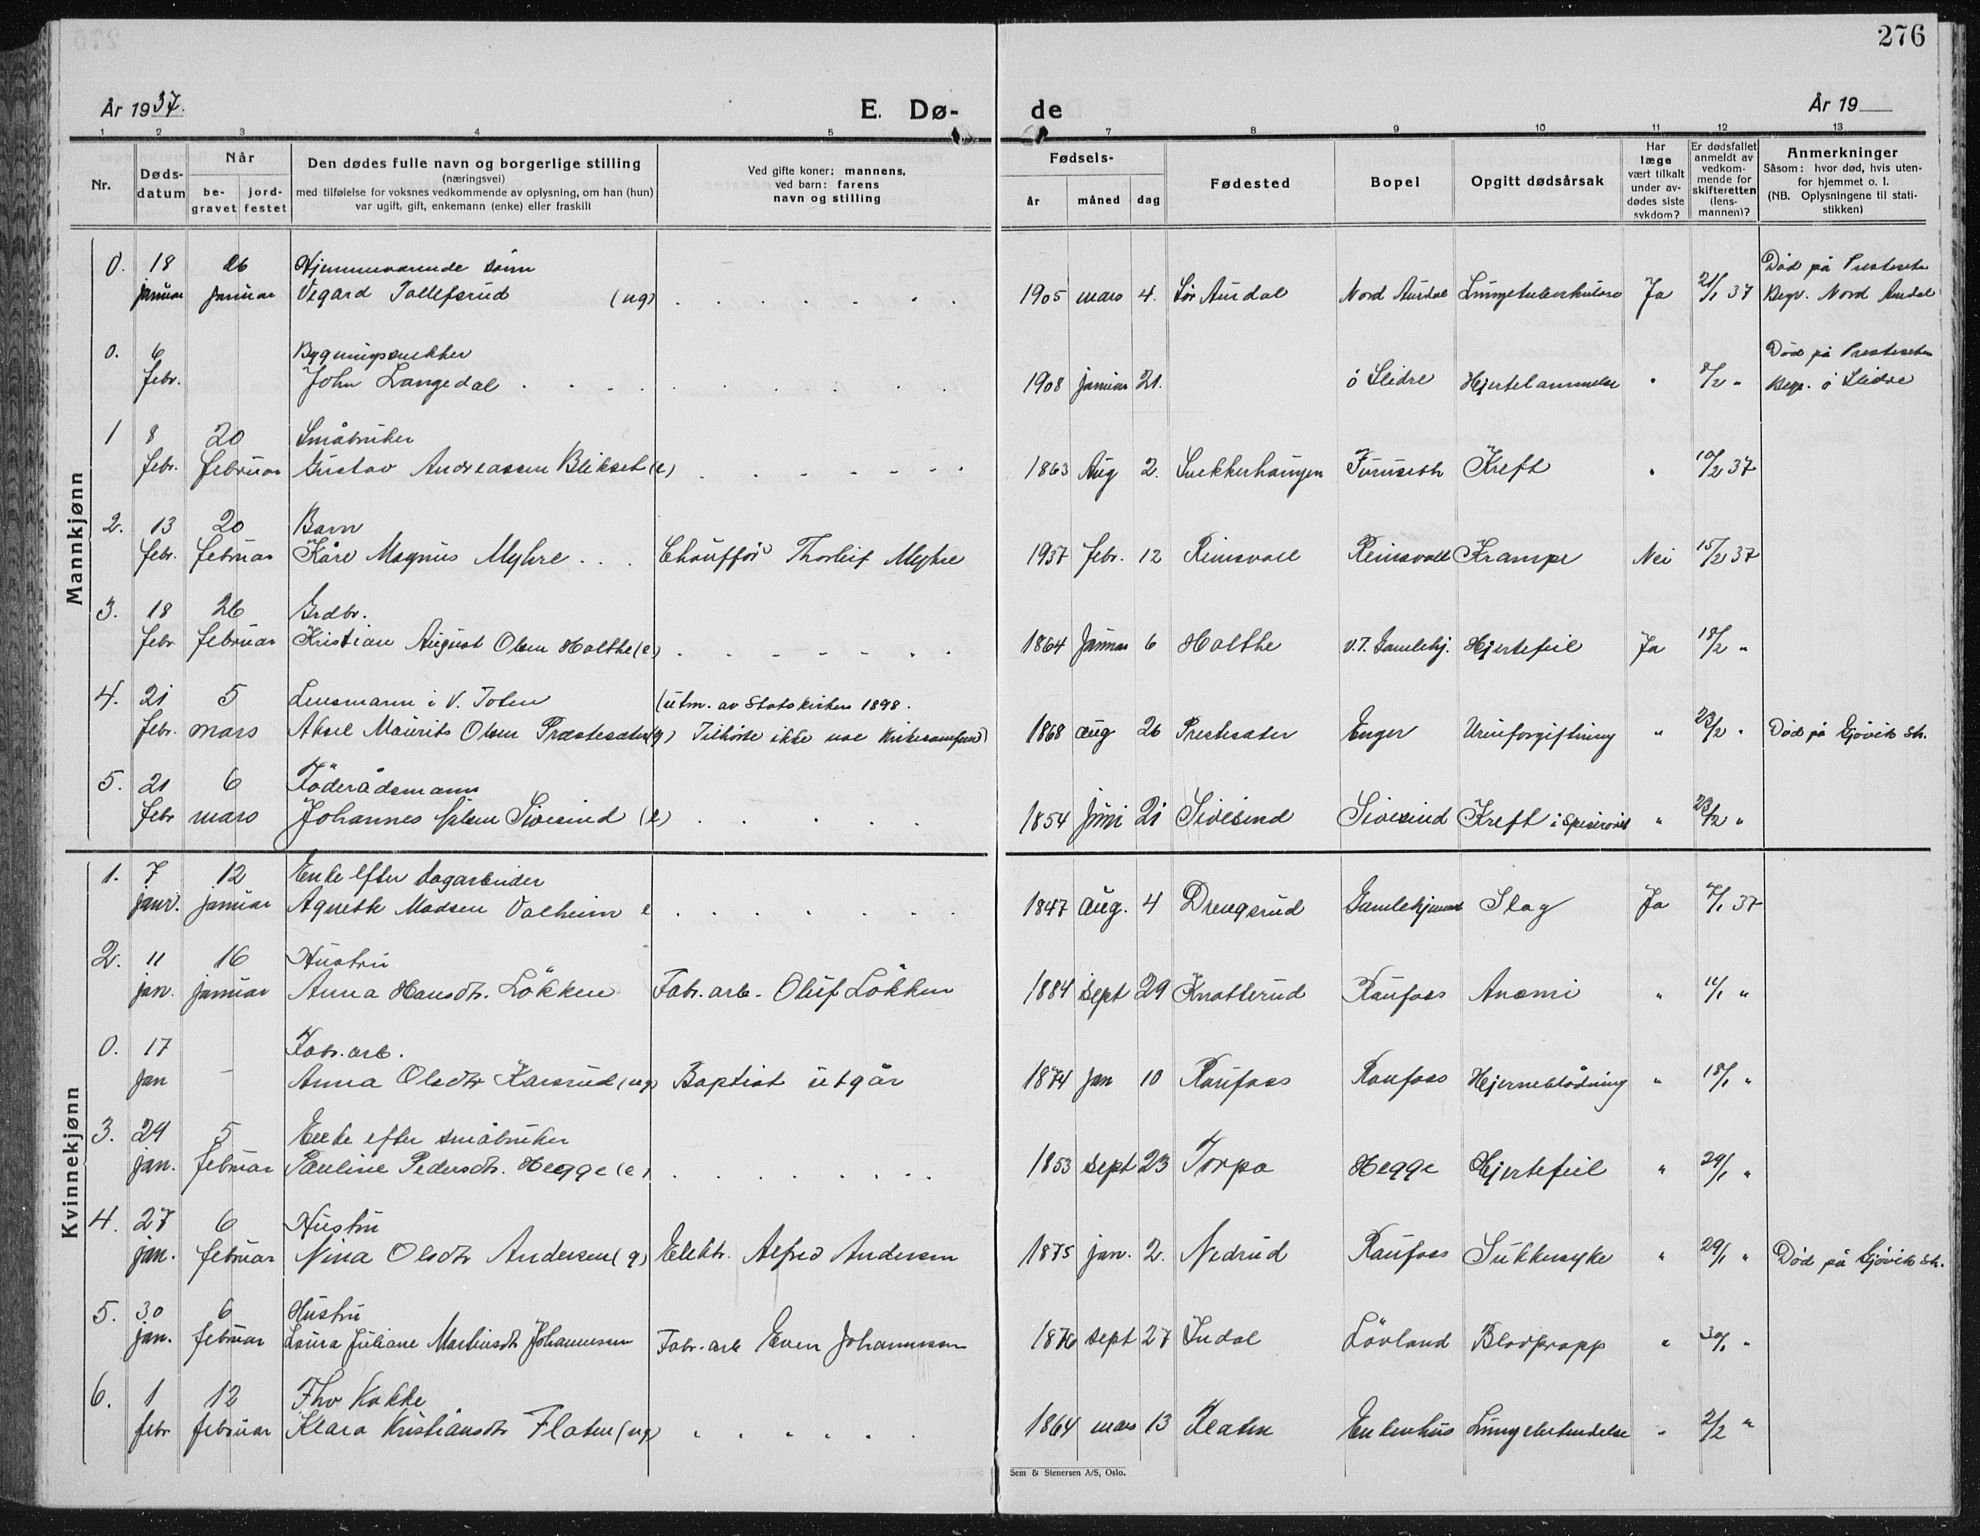 276
År 1937.
E. Dø-
de
År 19
1 2 3 4 5 7 8 9 10 11 12 13
Nr.
Døds-
datum
Når
be-
gravet
jord-
festet
Den dødes fulle navn og borgerlige stilling
(næringsvei)
med tilføielse for voksnes vedkommende av oplysning, om han (hun)
var ugift, gift, enkemann (enke) eller fraskilt
Ved gifte koner: mannens,
ved barn: farens
navn og stilling
Fødsels-
år
måned
dag
Fødested
Bopel
Opgitt dødsårsak
Har
læge
vært tilkalt
under av-
dødes siste
sykdom?
Er dødsfallet
anmeldt av
vedkom-
mende for
skifteretten
(lens-
mannen)?
Anmerkninger
Såsom: hvor død, hvis uten-
for hjemmet o. l.
(NB. Oplysningene til stati-
stikken)
Mannkjønn
0. 18 26 Hjemmeværende sönn Död på Presteseter
januar januar Vegard Tollefsrud (ug) 1905 mars 4. Sör Aurdal Nord Aurdal Lungetuberkulose Ja 21/1 37 Begr. Nord Aurdal
0. 6 Bygningssnekker Död på Presteseter
febr. John Langedal 1908 januar 21. ö Slidre Hjertelammelse " 8/2 " Begr. ö Slidre
1 8 20 Småbruker
febr. februar Gustav Andreassen Blikset (e) 1863 Aug 2. Snekkerhaugen Furuseth Kreft " 10/2 37
2. 13 20 Barn
febr. februar Kåre Magnus Myhre Chaufför Thorleif Myhre 1937 febr. 12 Reinsvoll Reinsvoll Krampe Nei 15/2 37
3. 18 26 Grdbr.
febr februar Kristian August Olsen Holthe (e) 1864 Januar 6 Holthe V.T. Gamlehj. Hjertefeil Ja 18/2 "
4. 21 5 Lensmann i V. Toten (utm. av Statskirken 1898.
febr. mars Aksel Mauritz Olsen Præstesæter (g) Tilhörte ikke noe kirkesamfund) 1868 aug 26 Prestesæter Enger Urinforgiftning " 23/2 " Död på Gjövik sh.
5. 21 6 Föderådsmann
febr mars Johannes Sivesind (e) 1854 juni 21 Sivesind Sivesind Kreft i spiserörit " 23/2 "
Kvinnekjønn
1. 7 12 Enke efter dagarbeider
janr. januar Agnethe Madsen Valheim e 1847 aug. 4 Drengsrud Gamlehjemmet Slag Ja 7/1 37
2. 11 16 Hustru
jan. januar Anna Hansdtr. Lökken Fabr. arb. Oluf Lökken 1884 sept 29 Knatterud Raufoss Anæmi " 11/1 "
0. 17 Fabr. arb.
jan - Anna Olsdtr Karsrud (ug) Baptist utgår 1874 jan 10 Raufoss Raufoss Hjerneblödning " 18/1 "
3. 29 5 Enke efter småbruker
jan. februar Pauline Pedersdtr. Hegge (e) 1853 sept 23 Torpa Hegge Hjertefeil " 29/1 "
4. 27 6 Hustru
jan. februar Nina Olsdtr Andersen (g) Elektr. Alfred Andersen 1875 jan. 2. Nedrud Raufoss Sukkersyke " 29/1 " Död på Gjövik sh.
5. 30 6 Hustru
jan. februar Laura Juliane Martinsdtr Johannessen Fabr. arb Even Johannessen 1876 sept 27 Indal Lövland Blodpropp " 30/1 "
6. 1 12 Fhv Kokke
febr februar Klara Kristiansdtr Flaten (ug) 1864 mars 13 Flaten Enkenhus Lungebetendelse " 2/2 "
Sem & Stenersen A/S, Oslo.